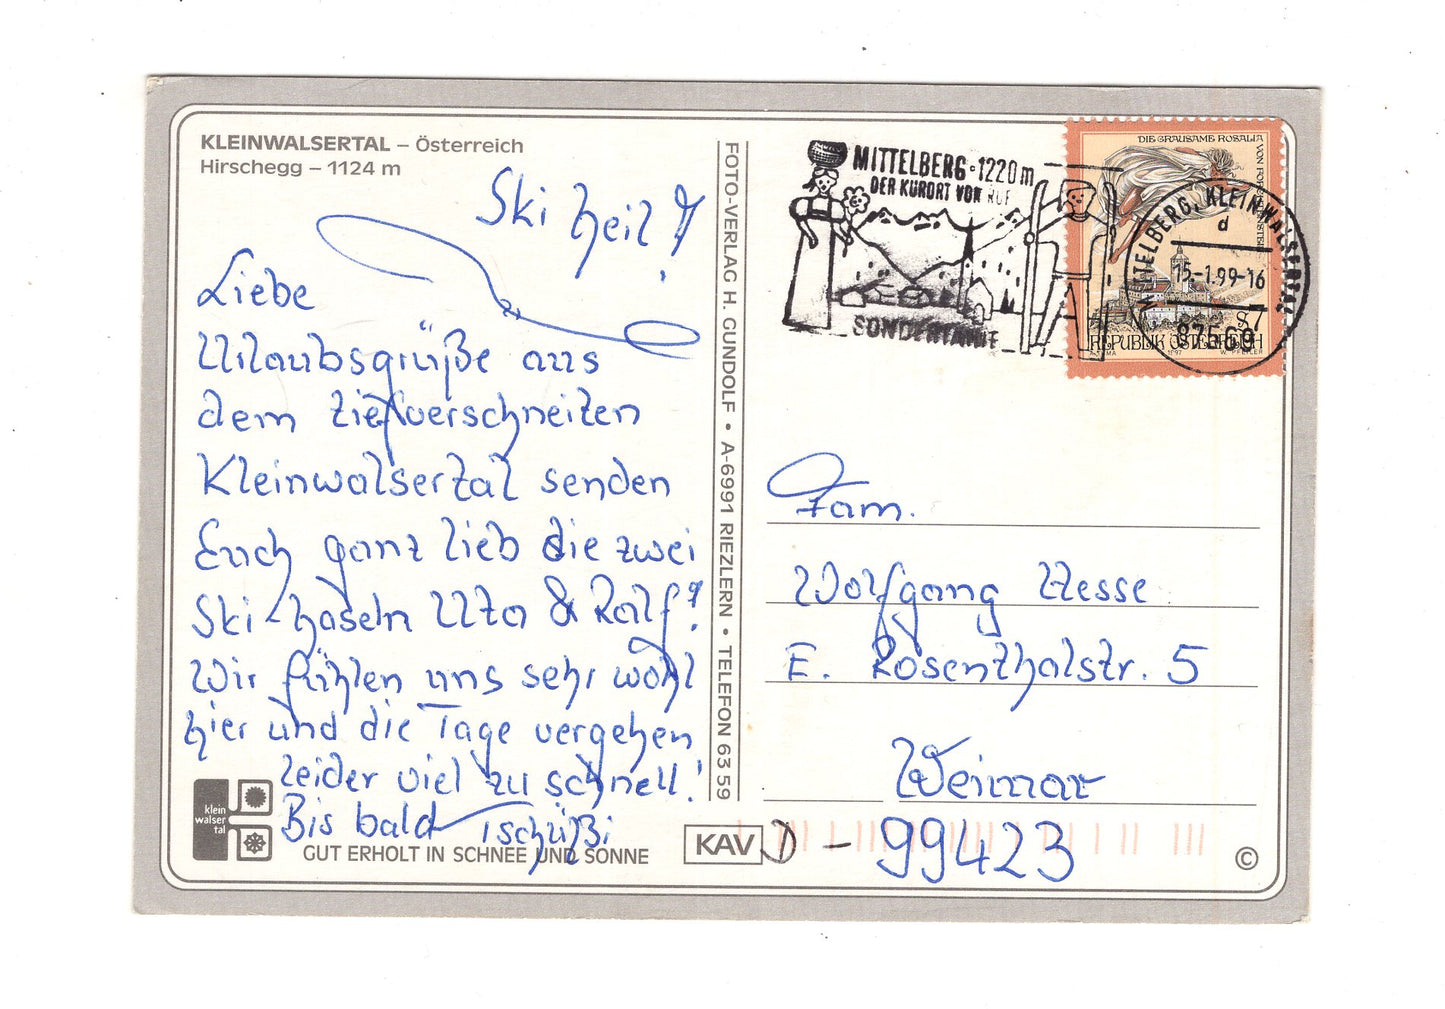 KLEINWALSERTAL – Österreich
Hirschegg – 1124 m
Ski heil!
Liebe
Urlaubsgrüße aus
dem tiefverschneiten
Kleinwalsertal senden
Euch ganz lieb die zwei
Ski-haseln Uta & Ralf!
Wir fühlen uns sehr wohl
hier und die Tage vergehen
leider viel zu schnell!
Bis bald Tschüßi
klein
walser
tal
GUT ERHOLT IN SCHNEE UND SONNE
FOTO-VERLAG H. GUNDOLF • A-6991 RIEZLERN • TELEFON 63 59
KAV
MITTELBERG·1220m
DER KURORT VON RUF
SONDERTARIF
DIE GRAUSAME ROSALIA
REPUBLIK ÖSTERREICH
1997 W. PFEILER
S 7
MITTELBERG, KLEINWALSERTAL
d
15-1.99-16
87569
Fam.
Wolfgang Hesse
E. Rosenthalstr. 5
Weimar
D - 99423
©